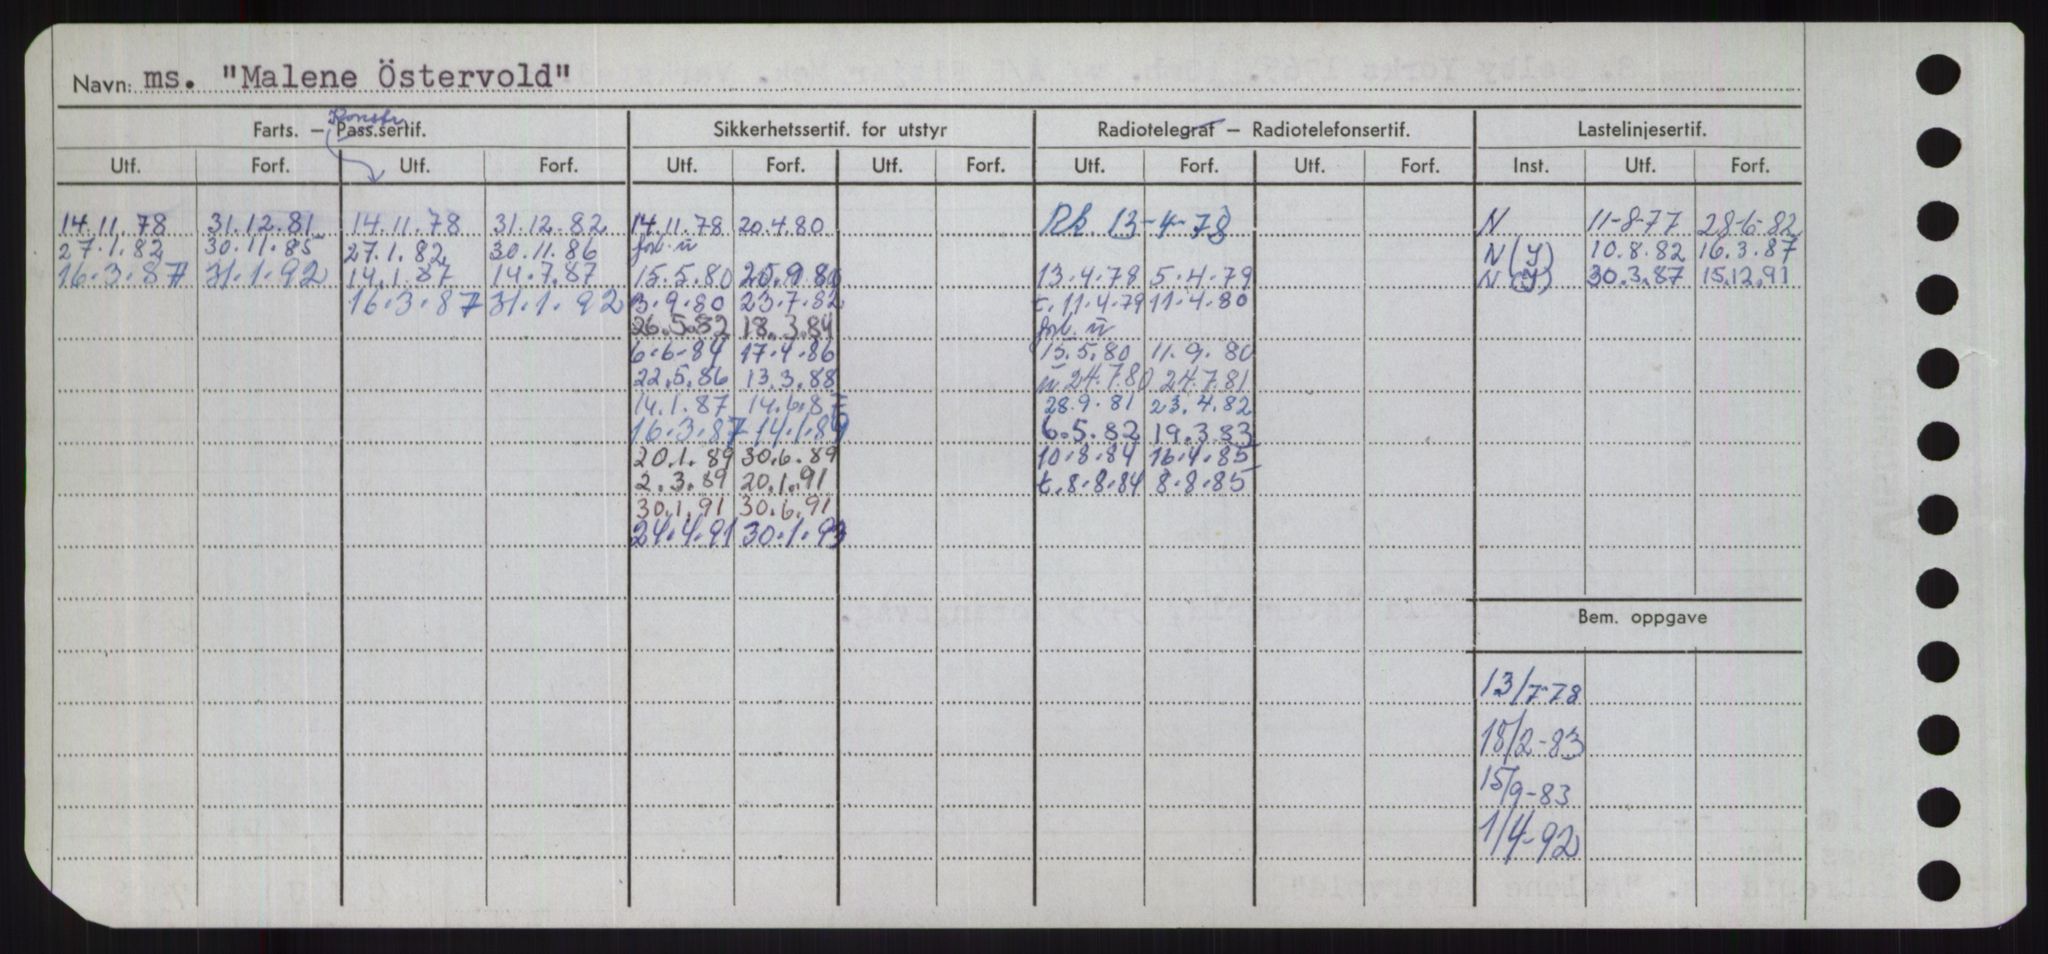 Navn: ms. "Malene Östervold"
Konstr.
Farts. – Pass.sertif. Sikkerhetssertif. for utstyr Radiotelegraf – Radiotelefonsertif. Lastelinjesertif.
Utf. Forf. Utf. Forf. Utf. Forf. Utf. Forf. Utf. Forf. Utf. Forf. Inst. Utf. Forf.
14.11.78 31.12.81 14.11.78 31.12.82 14.11.78 20.4.80 Rk. 13-4-78 N 11-8-77 28-6-82
27.1.82 30.11.85 27.1.82 30.11.86 forl. ü N(Y) 10.8.82 16.3.87
16.3.87 31.1.92 14.1.87 14.7.87 15.5.80 20.9.80 13.4.78 5.4.79 N(Y) 30.3.87 15.12.91
16.3.87 31.1.92 3.9.80 23.7.82 t. 11.4.79 11.4.80
26.5.82 18.3.84 forl. ü
6.6.84 17.4.86 15.5.80 11.9.80
22.5.86 13.3.88 ü 24.7.80 24.7.81
14.1.87 14.6.87 28.9.81 23.4.82
16.3.87 14.1.89 6.5.82 19.3.83
20.1.89 30.6.89 10.8.84 16.4.85
2.3.89 20.1.91 t. 8.8.84 8.8.85
30.1.91 30.6.91
24.4.91 30.1.93
Bem. oppgave
13/7-78
18/2-83
15/9-83
1/4-92